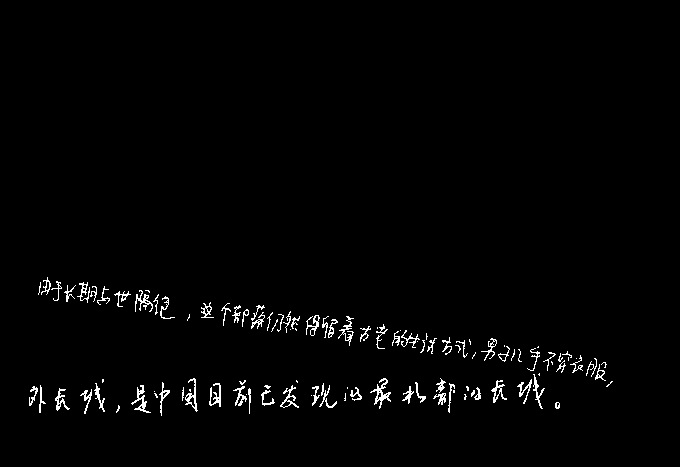 由于长期与世隔绝，这个部落仍然保留着古老的生活方式，男子几乎不穿衣服，
外长城，是中国目前已发现的最北部的长城。